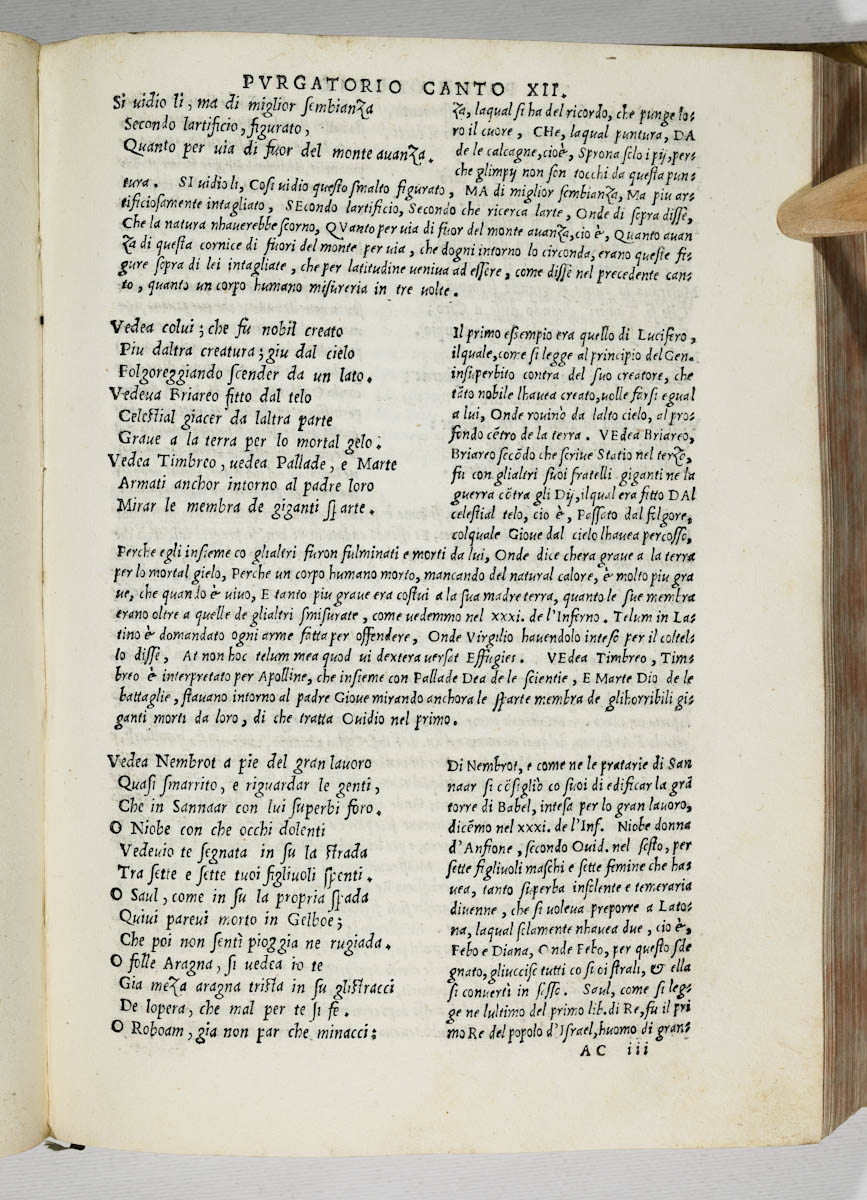 PVRGATORIO CANTO XII.
Si uidio li, ma di miglior sembianza
Secondo lartificio, figurato,
Quanto per uia di fuor del monte auanza.
za, laqual si ha del ricordo, che punge lo-
ro il cuore, CHe, laqual puntura, DA
de le calcagne, cioè, Sprona solo i pij, per-
che glimpij non son tocchi da questa pun-
tura. SI uidio li, Cosi uidio questo smalto figurato, MA di miglior sembianza, Ma piu ar-
tificiosamente intagliato, SEcondo lartificio, Secondo che ricerca larte, Onde di sopra disse,
Che la natura nhauerebbe scorno, QVanto per uia di fuor del monte auanza, cio è, Quanto auan
za di questa cornice di fuori del monte per uia, che dogni intorno lo circonda, erano queste fi-
gure sopra di lei intagliate, che per latitudine ueniua ad essere, come disse nel precedente can-
to, quanto un corpo humano misureria in tre uolte.
Vedea colui; che fu nobil creato
Piu daltra creatura; giu dal cielo
Folgoreggiando scender da un lato.
Vedeua Briareo fitto dal telo
Celestial giacer da laltra parte
Graue a la terra per lo mortal gelo:
Vedea Timbreo, uedea Pallade, e Marte
Armati anchor intorno al padre loro
Mirar le membra de giganti sparte.
Il primo essempio era quello di Lucifero,
ilquale, come si legge al principio del Gen.
insuperbito contra del suo creatore, che
tāto nobile lhauea creato, uolle farsi equal
a lui, Onde rouinò da lalto cielo, al pro-
fondo cētro de la terra. VEdea Briareo,
Briareo secōdo che scriue Statio nel terzo,
fu con glialtri suoi fratelli giganti ne la
guerra cōtra gli Dij, ilqual era fitto DAl
celestial telo, cio è, Passato dal folgore,
colquale Gioue dal cielo lhauea percosso,
Perche egli insieme co glialtri furon fulminati e morti da lui, Onde dice chera graue a la terra
per lo mortal gielo, Perche un corpo humano morto, mancando del natural calore, è molto piu gra
ue, che quando è uiuo, E tanto piu graue era costui a la sua madre terra, quanto le sue membra
erano oltre a quelle de glialtri smisurate, come uedemmo nel xxxi. de l'Inferno. Telum in La-
tino è domandato ogni arme fatta per offendere, Onde Virgilio hauendolo inteso per il coltel-
lo disse, At non hoc telum mea quod ui dextera uersat Effugies. VEdea Timbreo, Tim-
breo è interpretato per Apolline, che insieme con Pallade Dea de le scientie, E Marte Dio de le
battaglie, stauano intorno al padre Gioue mirando anchora le sparte membra de glihorribili gi-
ganti morti da loro, di che tratta Ouidio nel primo.
Vedea Nembrot a pie del gran lauoro
Quasi smarrito, e riguardar le genti,
Che in Sannaar con lui superbi foro.
O Niobe con che occhi dolenti
Vedeuio te segnata in su la strada
Tra sette e sette tuoi figliuoli spenti.
O Saul, come in su la propria spada
Quiui pareui morto in Gelboe;
Che poi non sentì pioggia ne rugiada.
O folle Aragna, si uedea io te
Gia meza aragna trista in su glistracci
De lopera, che mal per te si fe.
O Roboam, gia non par che minacci;
Di Nembrot, e come ne le pratarie di San
naar si cōsigliò co suoi di edificar la grā
torre di Babel, intesa per lo gran lauoro,
dicēmo nel xxxi. de l'Inf. Niobe donna
d'Anfione, secondo Ouid. nel sesto, per
sette figliuoli maschi e sette femine che ha-
uea, tanto superba insolente e temeraria
diuenne, che si uoleua preporre a Lato-
na, laqual solamente nhauea due, cio è,
Febo e Diana, Onde Febo, per questo sde
gnato, gliuccise tutti co suoi strali, & ella
si conuerti in sasso. Saul, come si leg-
ge ne lultimo del primo lib. di Re, fu il pri
mo Re del popolo d'Israel, huomo di gran-
AC iii